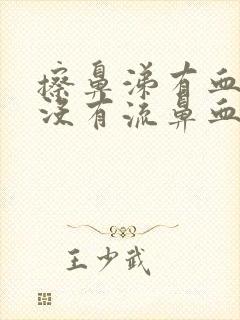 擦鼻涕有血
没有流鼻血
王少武